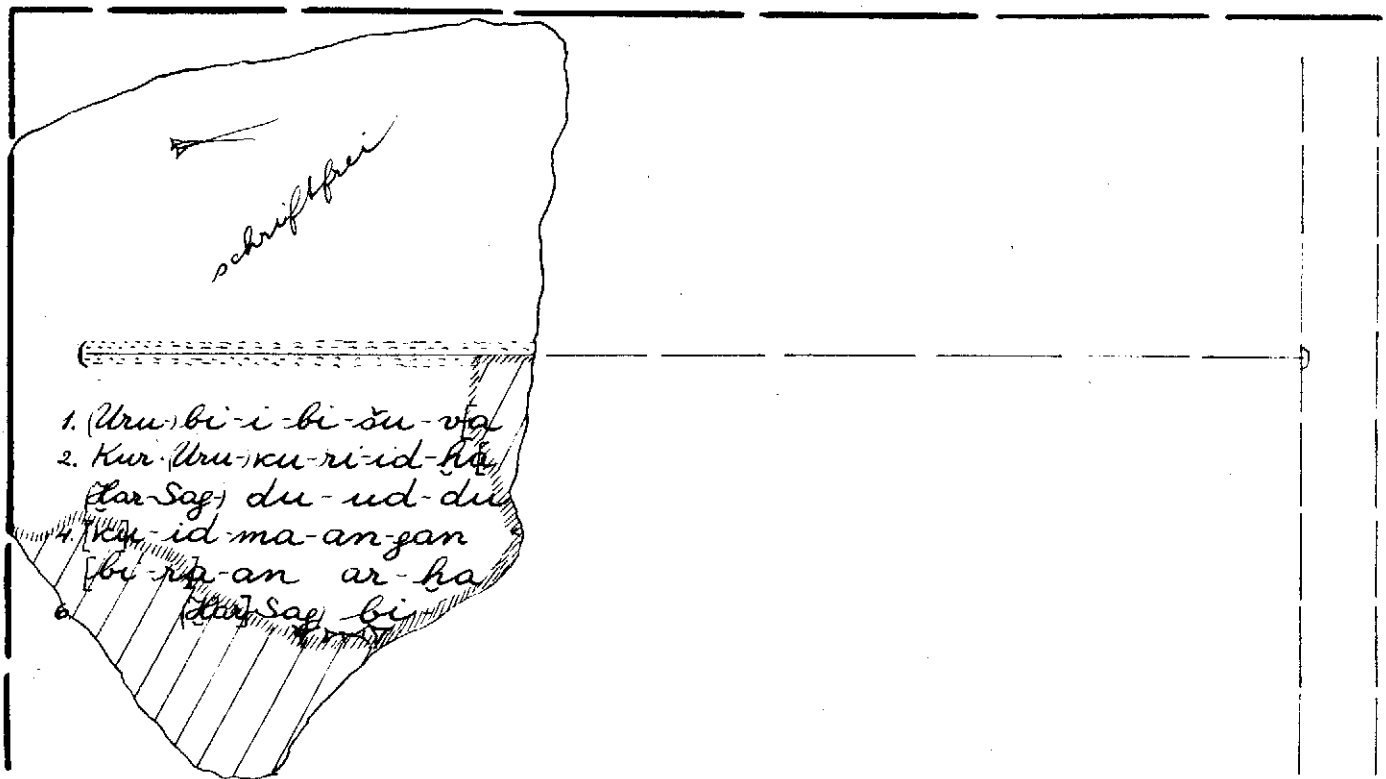 schriftfrei
1. (Uru-) bi-i-bi-šu-v[a
2. Kur-(Uru-) ku-ri-id-ḫ[a
(Ḫar-Sag-) du-ud-du
4. [ku]-id-ma-an-gan
[bi-r]a-an ar-ḫa
6 (Ḫar]-Sag) bi-